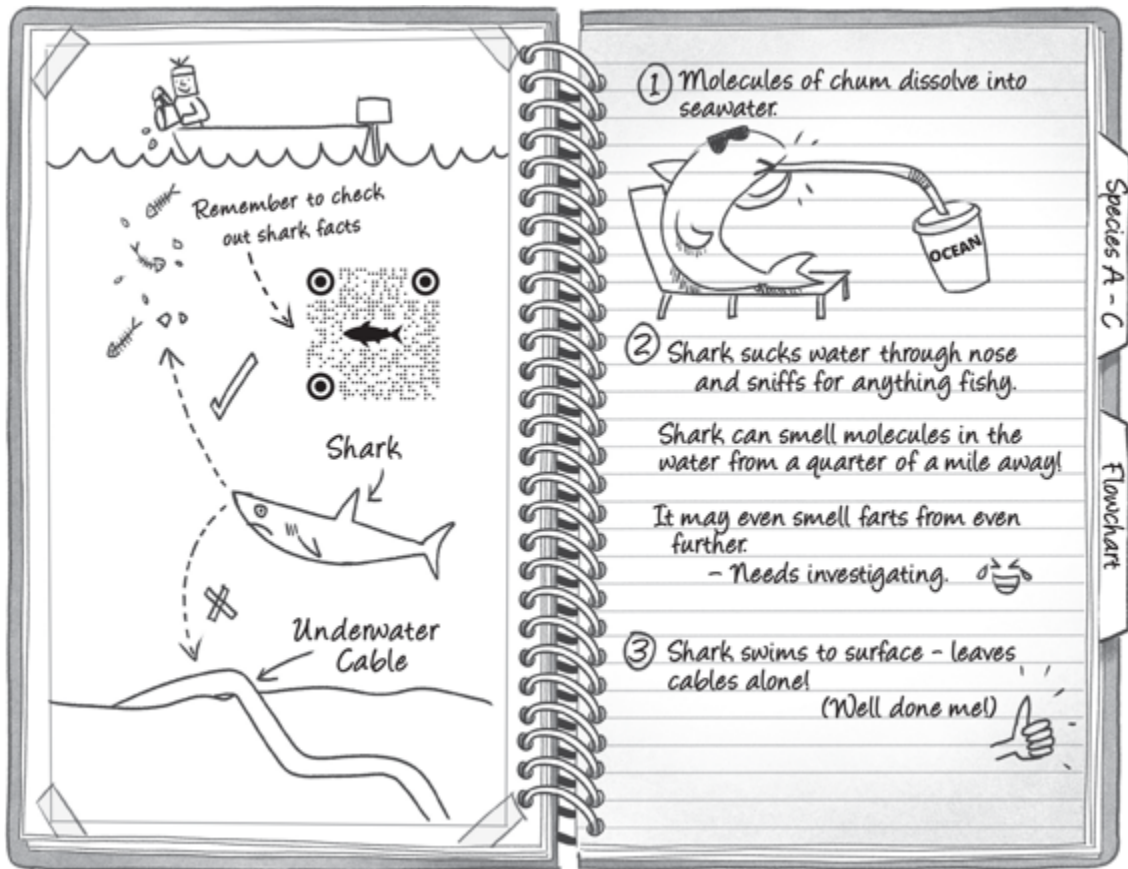 Remember to check
out shark facts
Shark
Underwater
Cable
1 Molecules of chum dissolve into
seawater.
OCEAN
2 Shark sucks water through nose
and sniffs for anything fishy.
Shark can smell molecules in the
water from a quarter of a mile away!
It may even smell farts from even
further.
- Needs investigating.
3 Shark swims to surface - leaves
cables alone!
(Well done me!)
Species A - C
Flowchart